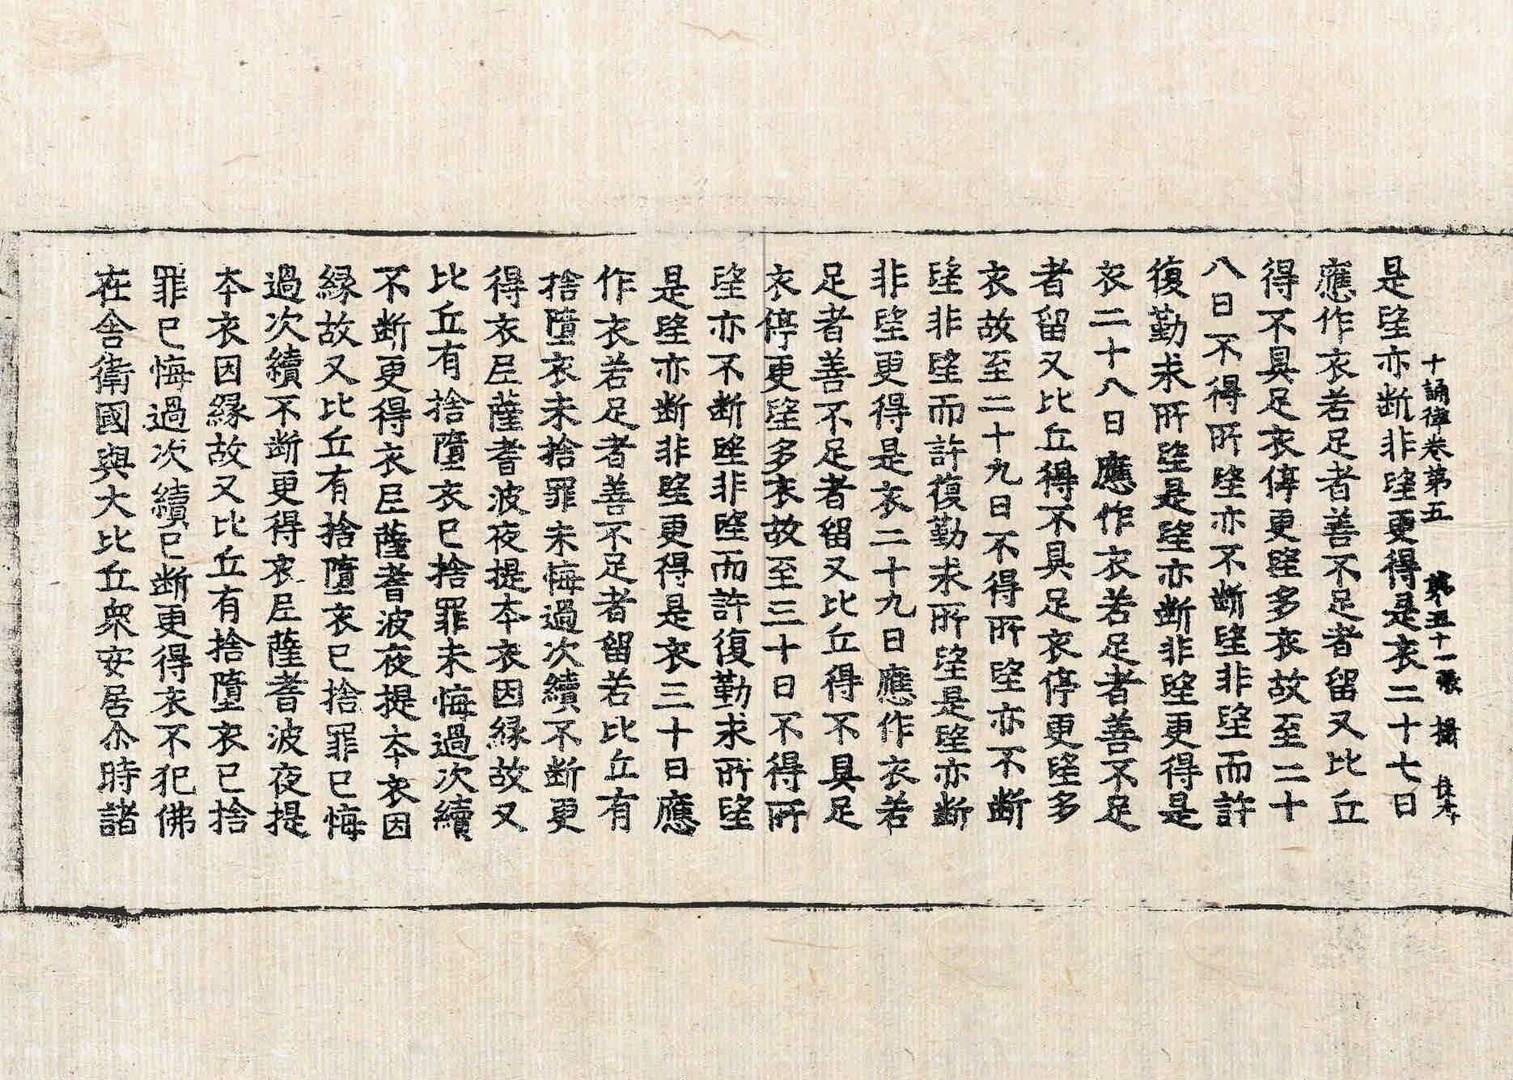 十誦律卷第五 第五十一張 攝
是望亦断非望更得是衣二十七日
應作衣若足者善不足者留又比丘
得不具足衣停更望多衣故至二十
八日不得所望亦不断望非望而許
復勤求所望是望亦断非望更得是
衣二十八日應作衣若足者善不足
者留又比丘得不具足衣停更望多
衣故至二十九日不得所望亦不断
望非望而許復勤求所望是望亦断
非望更得是衣二十九日應作衣若
足者善不足者留又比丘得不具足
衣停更望多衣故至三十日不得所
望亦不断望非望而許復勤求所望
是望亦断非望更得是衣三十日應
作衣若足者善不足者留若比丘有
捨墮衣未捨罪未悔過次續不断更
得衣尼薩耆波夜提本衣因緣故又
比丘有捨墮衣已捨罪未悔過次續
不断更得衣尼薩耆波夜提本衣因
緣故又比丘有捨墮衣已捨罪已悔
過次續不断更得衣尼薩耆波夜提
本衣因緣故又比丘有捨墮衣已捨
罪已悔過次續已断更得衣不犯佛
在舍衛國與大比丘衆安居尒時諸